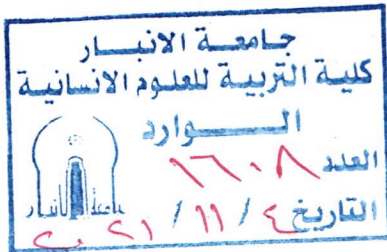 جامعة الانبار
كلية التربية للعلوم الانسانية
الــوارد
العدد ١٦٠٨
التاريخ ٤ / ١١ / ٢٠٢١
جامعة الانبار